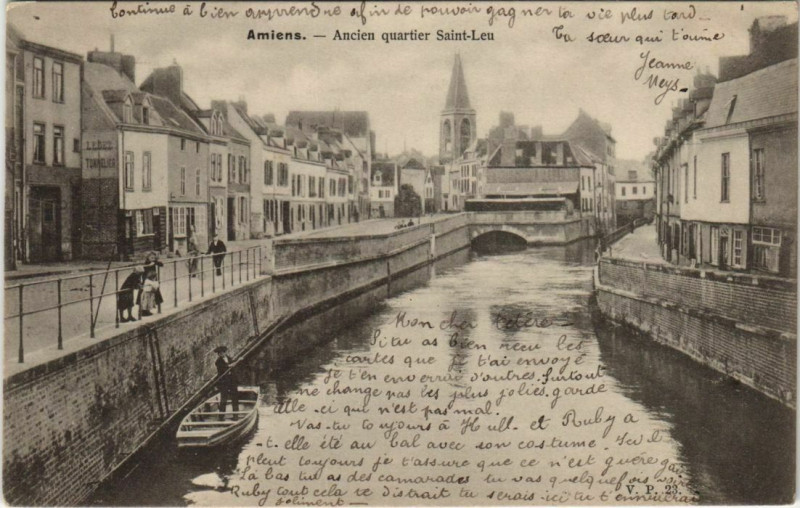 Continue à bien apprendre afin de pouvoir gagner ta vie plus tard
Ta sœur qui t'aime
Jeanne
Meys
Amiens. — Ancien quartier Saint-Leu
Mon cher
Si tu as bien reçu les
cartes que je t'ai envoyé
je t'en enverrai d'autres. Surtout
ne change pas les plus jolies, garde
celle-ci qui n'est pas mal.
Vas-tu toujours à Hull et Ruby a
t-elle été au bal avec son costume. Ici il
pleut toujours je t'assure que ce n'est guère gai
Là bas tu as des camarades tu vas quelquefois voir
Ruby tout cela te distrait tu serais ici tu t'ennuierais
joliment
V. P. 23.